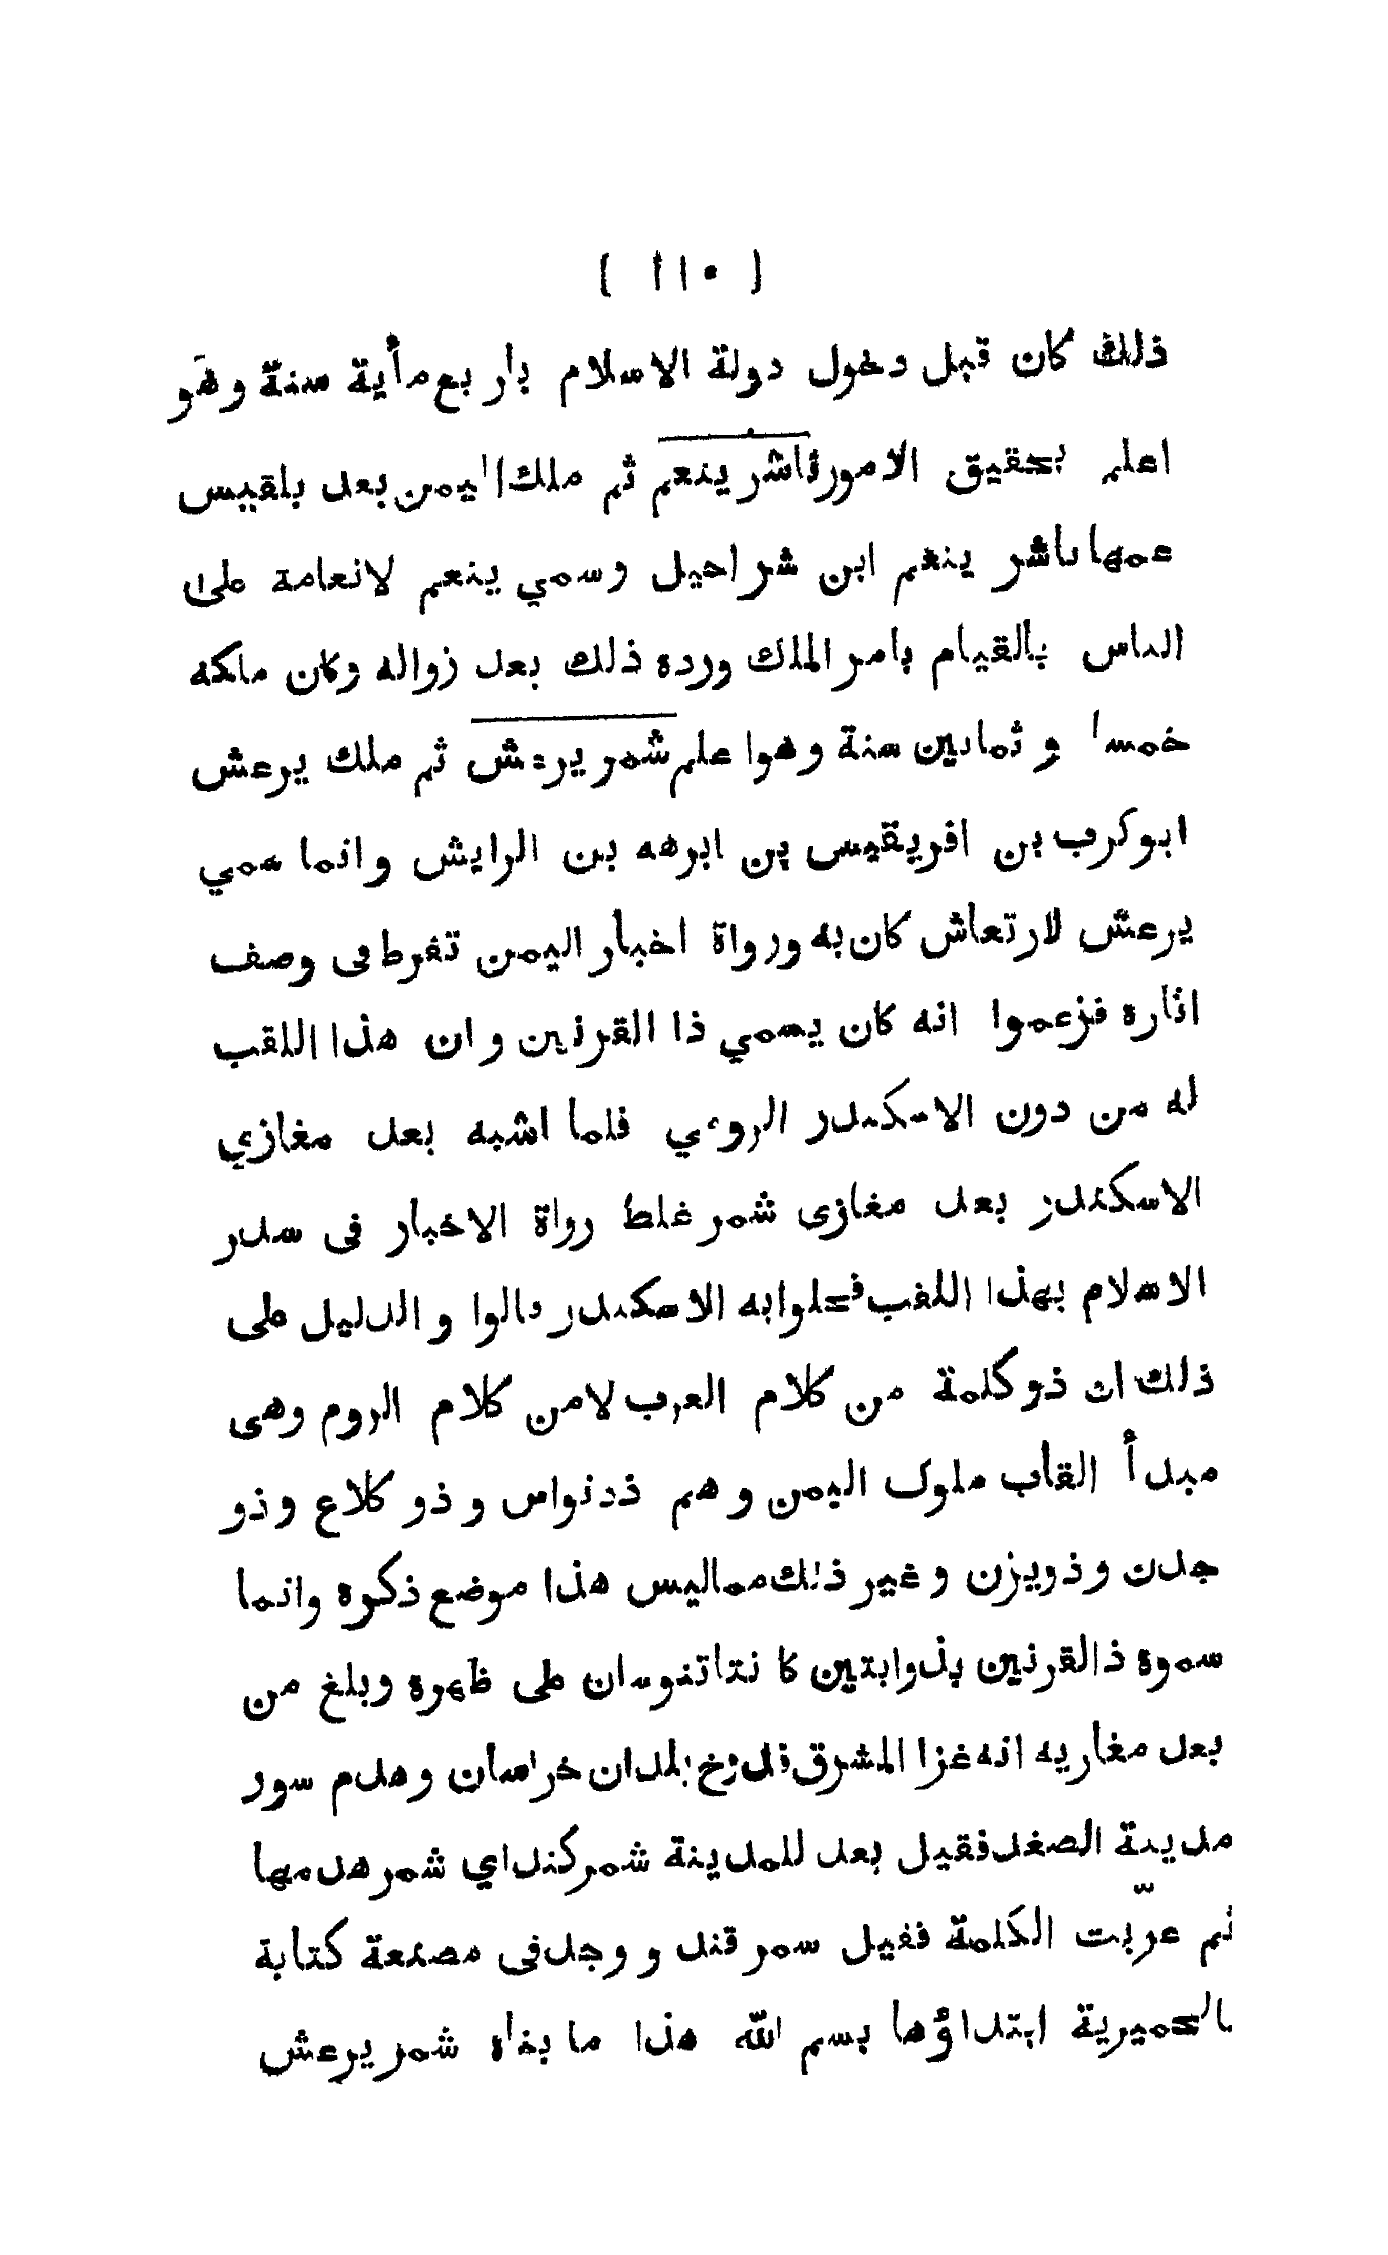 ( ١١٠ )
ذلك كان قبل دخول دولة الاسلام بار بع مأية سنة وهو
اعلم بحقيق الامور ناشر ينعم ثم ملك اليمن بعد بلقيس
عمها ناشر ينعم ابن شراحيل وسمي ينعم لانعامة على
الناس بالقيام بامر الملك ورده ذلك بعد زواله وكان ملكه
خمسا و ثمانين سنة وهوا علم شمر يرعش ثم ملك يرعش
ابوكرب بن افريقيس بن ابرهه بن الرايش وانما سمي
يرعش لارتعاش كان به ورواة اخبار اليمن تفرط في وصف
اثاره فزعموا انه كان يسمي ذا القرنين وان هذا اللقب
له من دون الاسكندر الرومي فلما اشبه بعد مغازي
الاسكندر بعد مغازى شمر غلط رواة الاخبار في سدر
الاسلام بهذا اللقب فحلوا به الاسكندر قالوا و الدليل على
ذلك ان ذو كلمة من كلام العرب لا من كلام الروم وهى
مبدأ القاب ملوك اليمن وهم ذدنواس و ذو كلاع و ذو
جدن وذويزن وغير ذلك مماليس هذا موضع ذكره وانما
سموه ذالقرنين بذوابتين كا نتا تنوسان على ظهره وبلغ من
بعد مغاريه انه غزا المشرق فدوخ بلدان خراسان وهدم سور
مدينة الصغد فقيل بعد للمدينة شمر كنداي شمر هدمها
ثم عرّبت الكلمة فقيل سمر قند و وجد في مصنعة كتابة
بالحميرية ابتداؤها بسم الله هذا ما بناه شمر يرعش